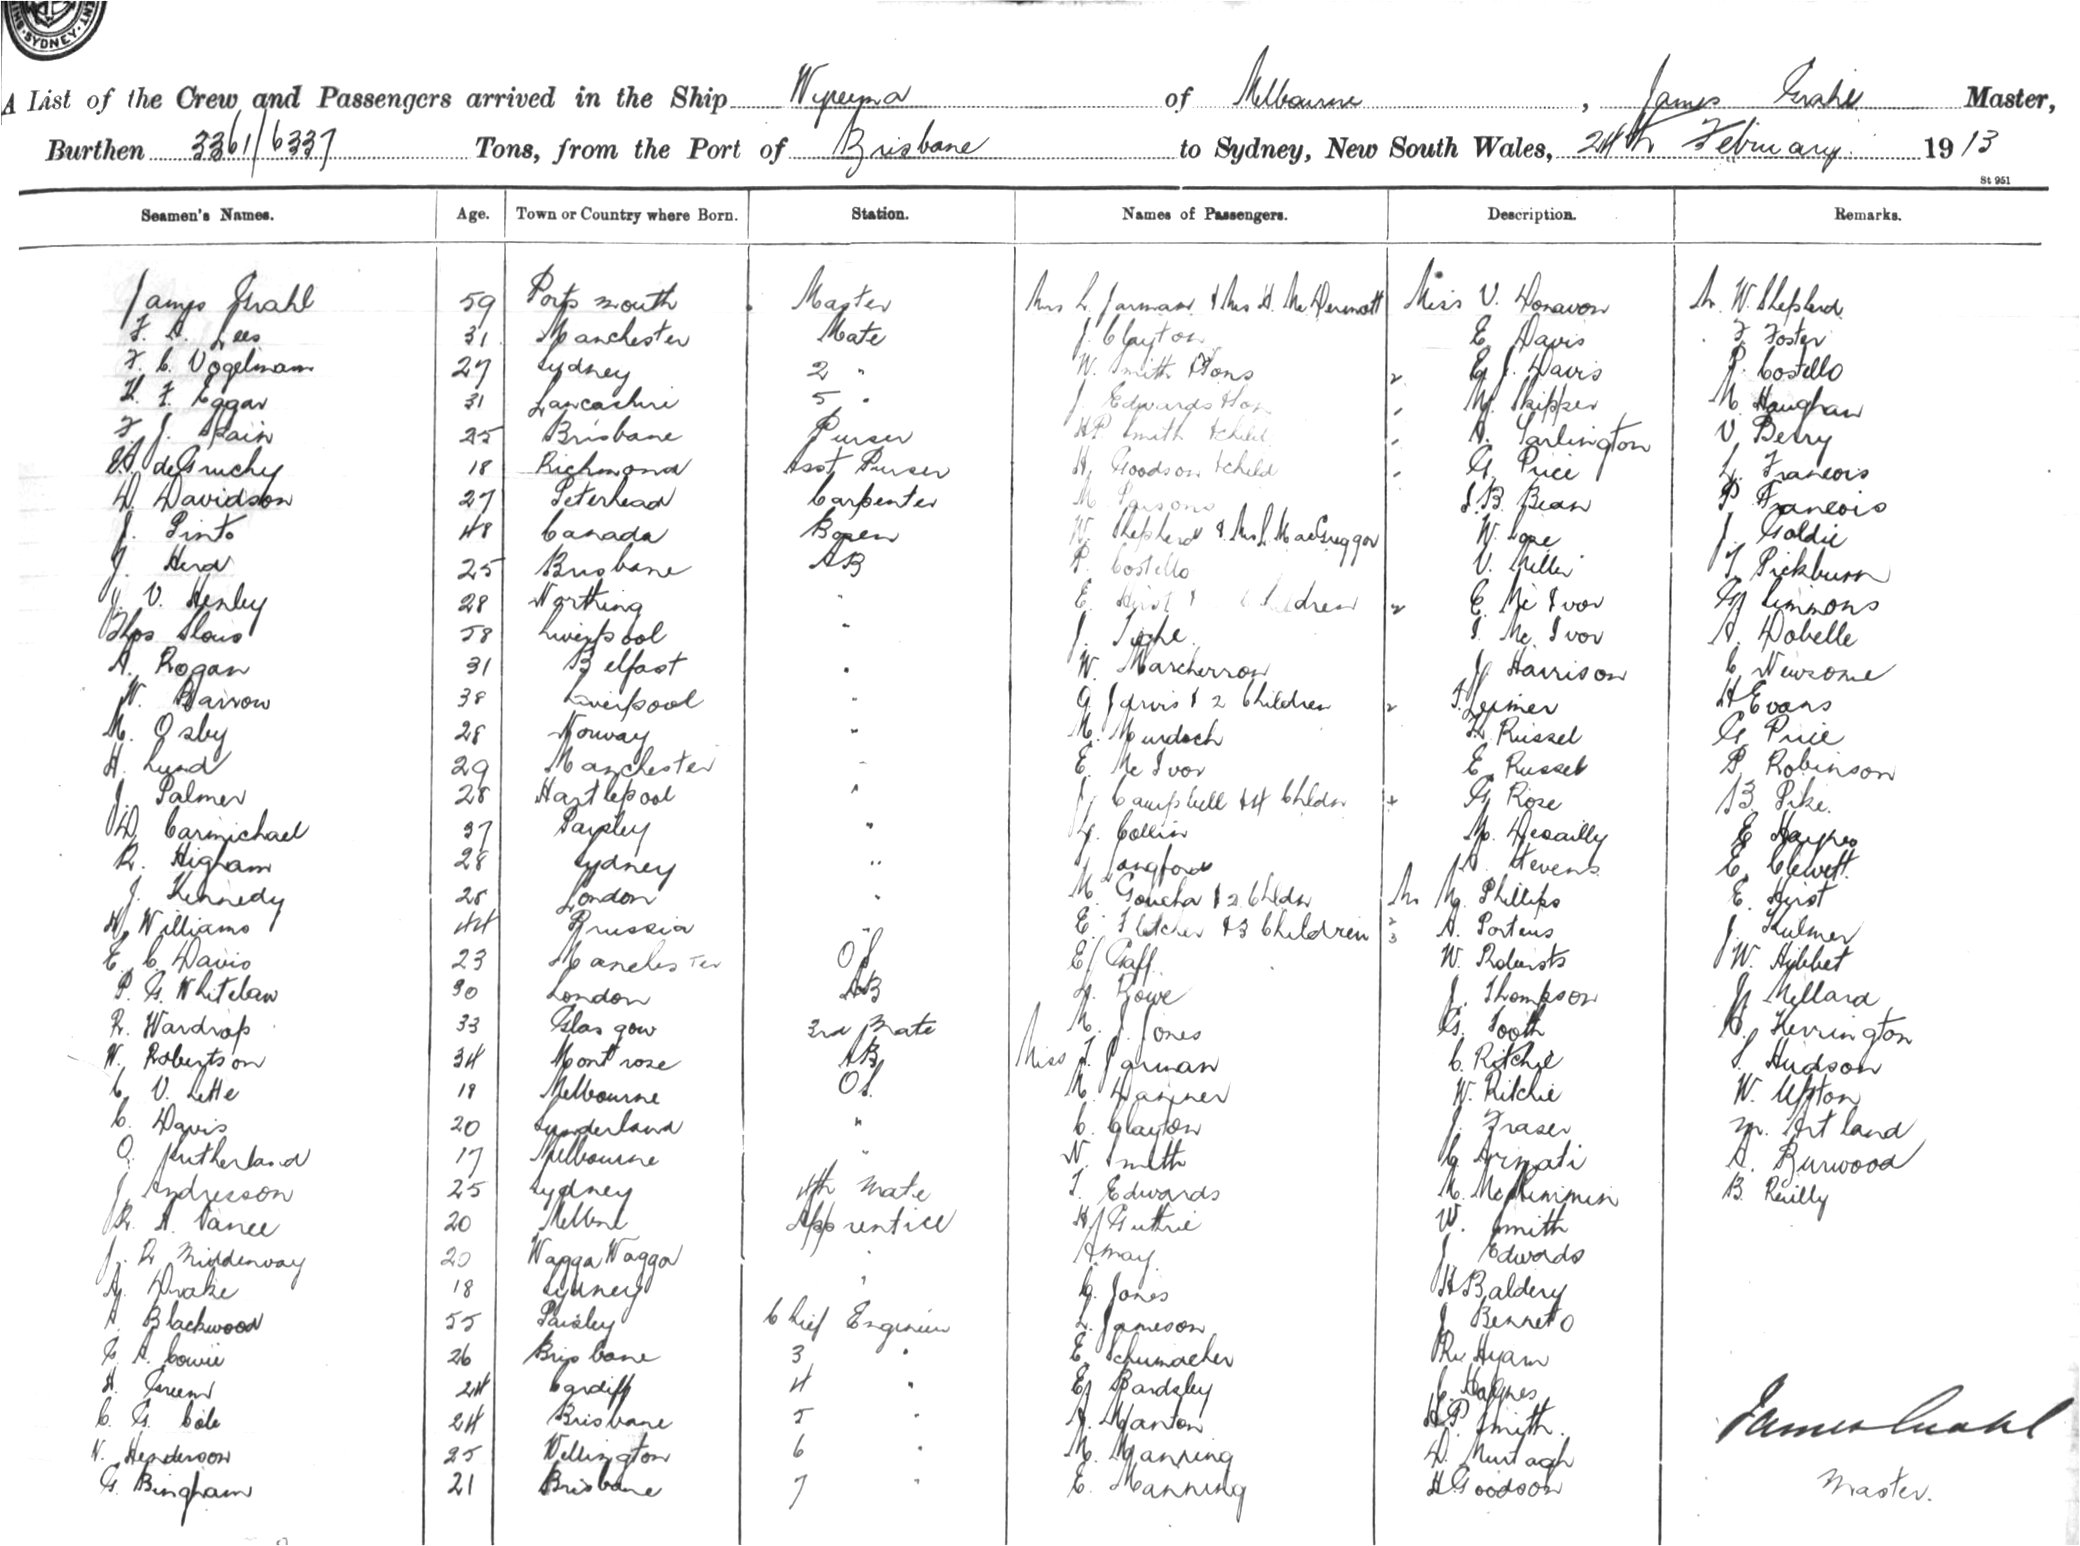 SYDNEY
A List of the Crew and Passengers arrived in the Ship Wyreema of Melbourne, James Grahl Master,
Burthen 3361/6337 Tons, from the Port of Brisbane to Sydney, New South Wales, 24th February 1913
St 951
Seamen's Names. Age. Town or Country where Born. Station. Names of Passengers. Description. Remarks.
James Grahl 59 Portsmouth Master Mrs L. Jarman & Mrs H. McDermott Miss V. Donavon Mr W. Shepherd
F. A. Lees 31 Manchester Mate J. Clayton E. Davis F. Foster
F. C. Vogelmann 27 Sydney 2 " W. Smith E. J. Davis P. Costello
H. F. Eggar 31 Lancashire 5 " J. Edwards M. Skipper M. Haughan
F. J. Spain 25 Brisbane Purser H P Smith & child A. Tarlington V. Berry
de Gruchy 18 Richmond Asst Purser H. Goodson & child G. Price L. Francois
D. Davidson 27 Peterhead Carpenter M. Parsons J. B. Bean P. Francois
J. Pinto 48 Canada Bosen W. Shepherd & Mrs L MacGreggor W. Cope J. Goldie
J. Herd 25 Brisbane AB P. Costello V. Miller T. Pickburn
J. V. Henley 28 Worthing " E. Hirst & children 2 E. McIvor G. Simmons
Thos 58 Liverpool " J. Tighe I. McIvor A. Dobelle
A. Rogan 31 Belfast " W. J. Harrison C. Newsome
W. Barrow 38 Liverpool " G Jarvis & 2 Children 2 H Evans
M. Osby 28 Norway " M. Murdoch H. Russel G. Price
H. Lund 29 Manchester " E. McIvor E. Russel P. Robinson
J. Palmer 28 Hartlepool " J. Campbell & 4 Childn 4 G. Rose B. Pike
D. Carmichael 37 Paisley " L. Collin M. Desailly E. Haynes
R. Higham 28 Sydney " Langford A. Stevens E. Clewett
J. Kennedy 28 London " M. Goucha & 2 Childn Mr M. Phillips E. Hirst
W. Williams 44 Russia " E. Fletcher & 3 Children 3 A. Porteus J. Kulmer
E. C. Davis 23 Manchester OS E. Graff W. Roberts W. Hibbet
P. G. Whitelaw 30 London AB L. Rowe J. Thompson J. Millard
R. Wardrop 33 Glasgow 3rd Mate M. J. Jones G. Tooth A. Kerrington
W. Robertson 34 Montrose AB Miss J. Jarman C. Ritchie S. Hudson
C. V. Lette 18 Melbourne OS. M. Danner W. Ritchie W. Upton
C. Davis 20 Sunderland " C. Clayton J. Fraser M. Artland
O. Sutherland 17 Melbourne " N. Smith A. Burwood
J. Andresson 25 Sydney 4th Mate T. Edwards M. McKimmin B. Reilly
R. A. Vance 20 Melbne Apprentice H. Guthrie W. Smith
J. R. Middenway 20 Wagga Wagga " A May J. Edwards
A. Drake 18 Sydney " G. Jones H Baldery
A. Blackwood 55 Paisley Chief Engineer L. Jameson J. Bennet
E. A. Cowie 26 Brisbane 3 " E. Schumacher R. Hyam
H. Green 24 Cardiff 4 " E. Bardsley C. Haynes
C. G. Cole 24 Brisbane 5 " A. Manton H. P. Smith
N. Henderson 25 Wellington 6 " M. Manning D. Murtagh
G. Bingham 21 Brisbane 7 " E. Manning H Goodson
James Grahl
Master.